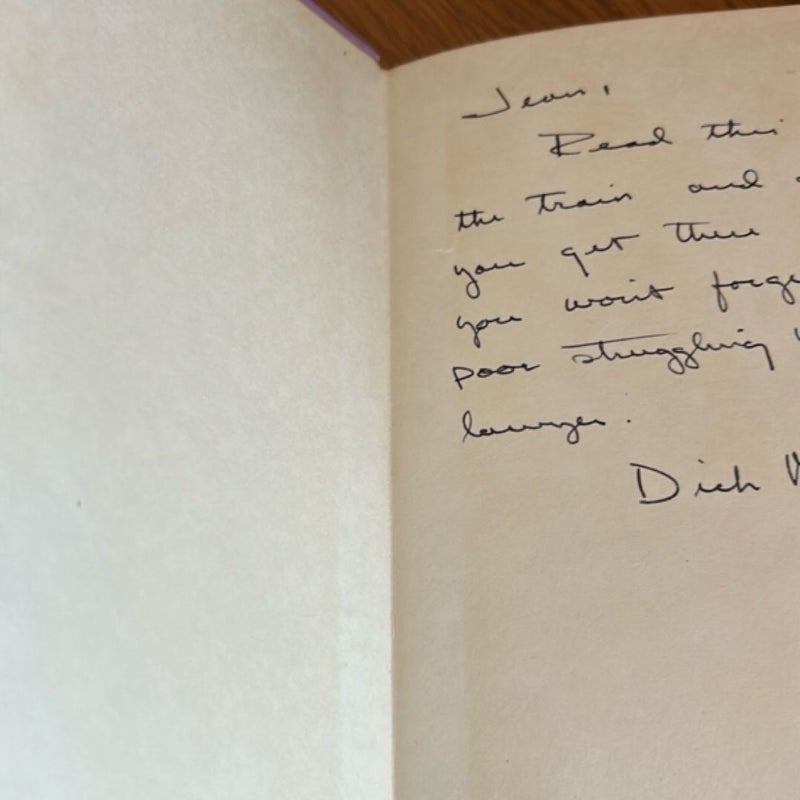 Jean,
Read this
the train and
you get there
you won't forge
poor struggling
lawyer.
Dick